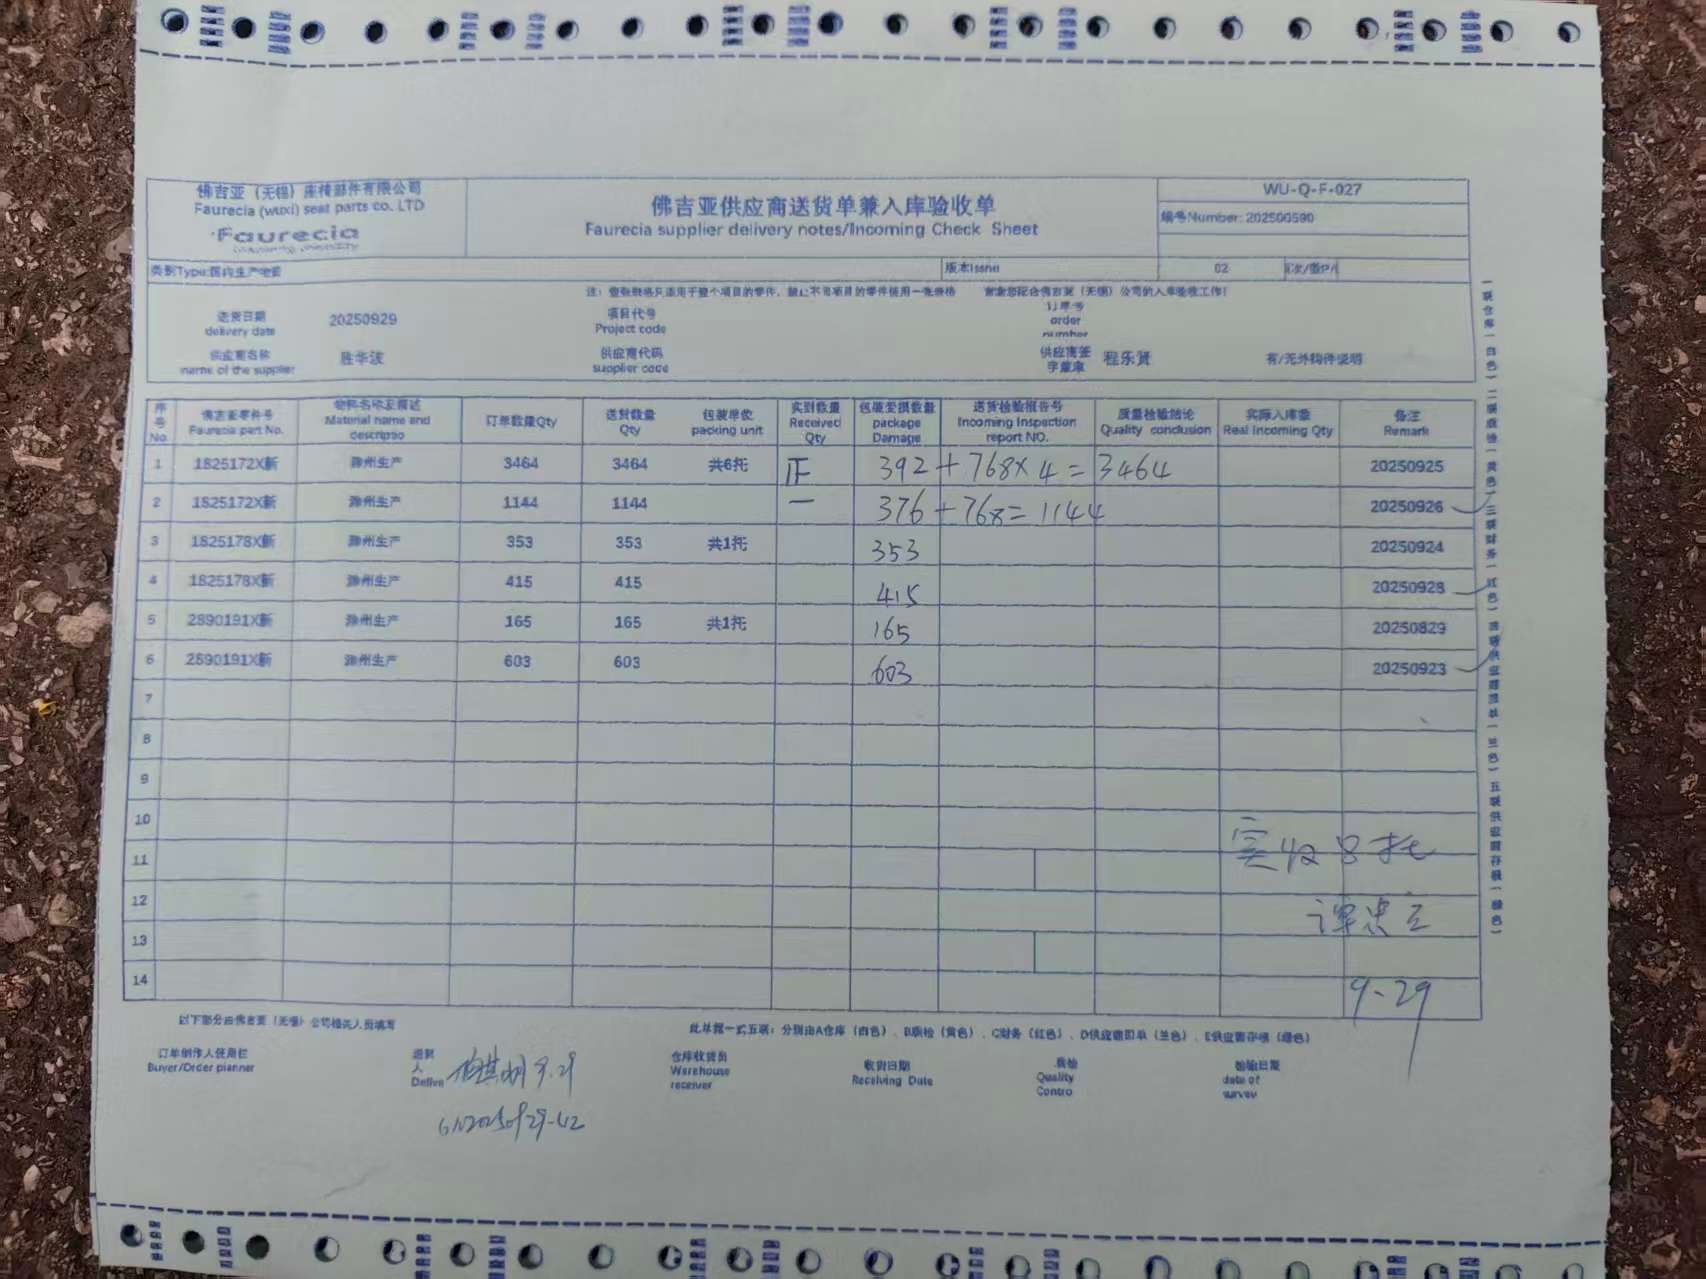 佛吉亚（无锡）座椅部件有限公司
Faurecia (wuxi) seat parts co. LTD
Faurecia
佛吉亚供应商送货单兼入库验收单
Faurecia supplier delivery notes/Incoming Check Sheet
WU-Q-F-027
编号Number: 202500590
类别Type:国内生产物料
版本Issue 02
注：整张表格只适用于整个项目的零件，禁止不同项目的零件使用一张表格 谢谢您配合佛吉亚（无锡）公司的入库验收工作！
送货日期 delivery date 20250929 项目代号 Project code 订单号 order number
供应商名称 name of the supplier 胜华波 供应商代码 supplier code 供应商签字盖章 程乐贤 有/无外购件说明
序号 No 佛吉亚零件号 Faurecia part No. 物料名称及描述 Material name and descriptio 订单数量Qty 送货数量 Qty 包装单位 packing unit 实到数量 Received Qty 包装受损数量 package Damage 送货检验报告号 Incoming Inspection report NO. 质量检验结论 Quality conclusion 实际入库数 Real Incoming Qty 备注 Remark
1 1825172X新 滁州生产 3464 3464 共6托 正 392+768×4=3464 20250925
2 1825172X新 滁州生产 1144 1144 一 376+768=1144 20250926
3 1825178X新 滁州生产 353 353 共1托 353 20250924
4 1825178X新 滁州生产 415 415 415 20250928
5 2890191X新 滁州生产 165 165 共1托 165 20250829
6 2890191X新 滁州生产 603 603 603 20250923
7
8
9
10
11
12
13
14
实收8托
谭忠立
9-29
一联仓库（白色）二联质检（黄色）三联财务（红色）四联供应商回单（兰色）五联供应商存根（绿色）
以下部分由佛吉亚（无锡）公司相关人员填写
此单据一式五联：分别由A仓库（白色）、B质检（黄色）、C财务（红色）、D供应商回单（兰色）、E供应商存根（绿色）
订单制作人使用栏 Buyer/Order planner 送货人 Delive 9.29 仓库收货员 Warehouse receiver 收货日期 Receiving Date 质检 Quality Contro 检验日期 date of survey